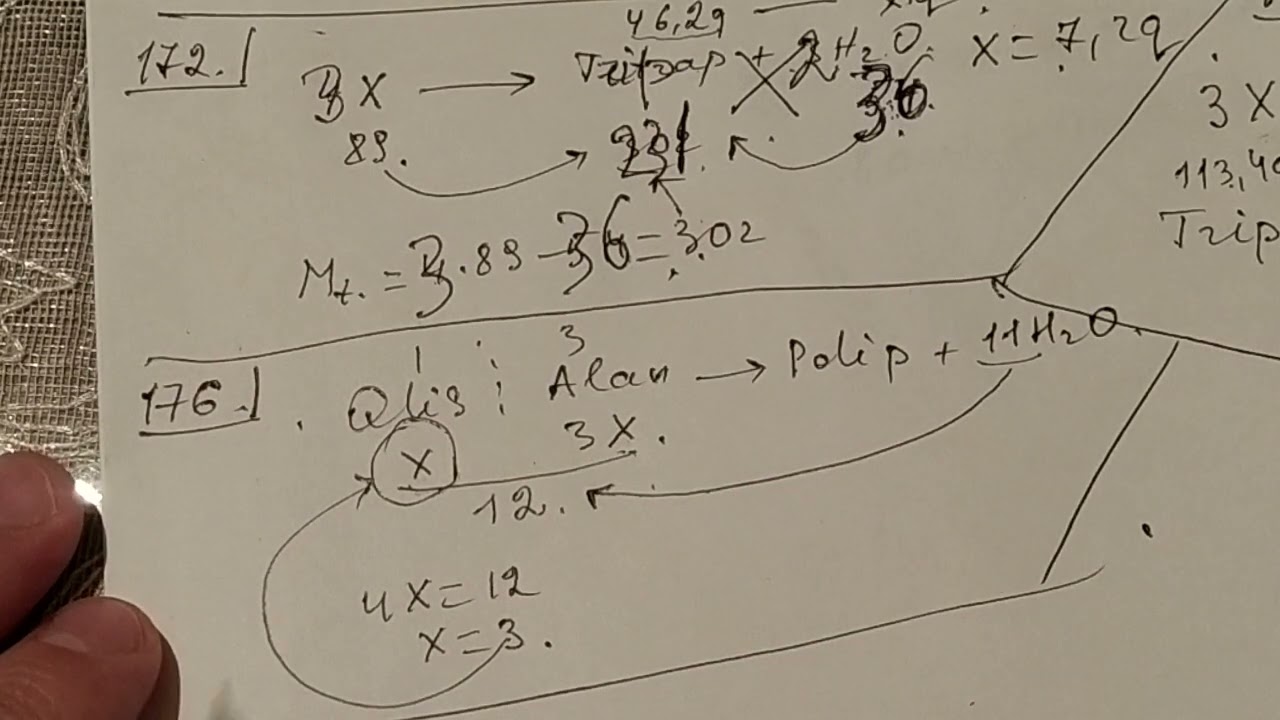 46,2g
172. 3X → Tripep + 2H₂O. X = 7,2g
89. 231. 36.
M = 3.89 - 36 = 302
3X
113,4
Trip
1 : 3
176. Qlis : Alan → Polip + 11H₂O
X 3X.
12.
4X = 12
X = 3.